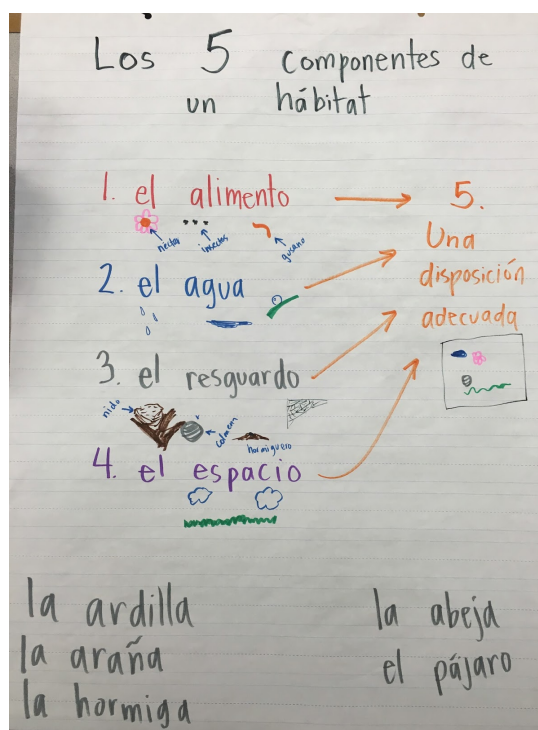 Los 5 componentes de
un hábitat
1. el alimento
néctar
insectos
gusano
2. el agua
3. el resguardo
nido
colmena
hormiguero
4. el espacio
5.
Una
disposición
adecuada
la ardilla
la araña
la hormiga
la abeja
el pájaro